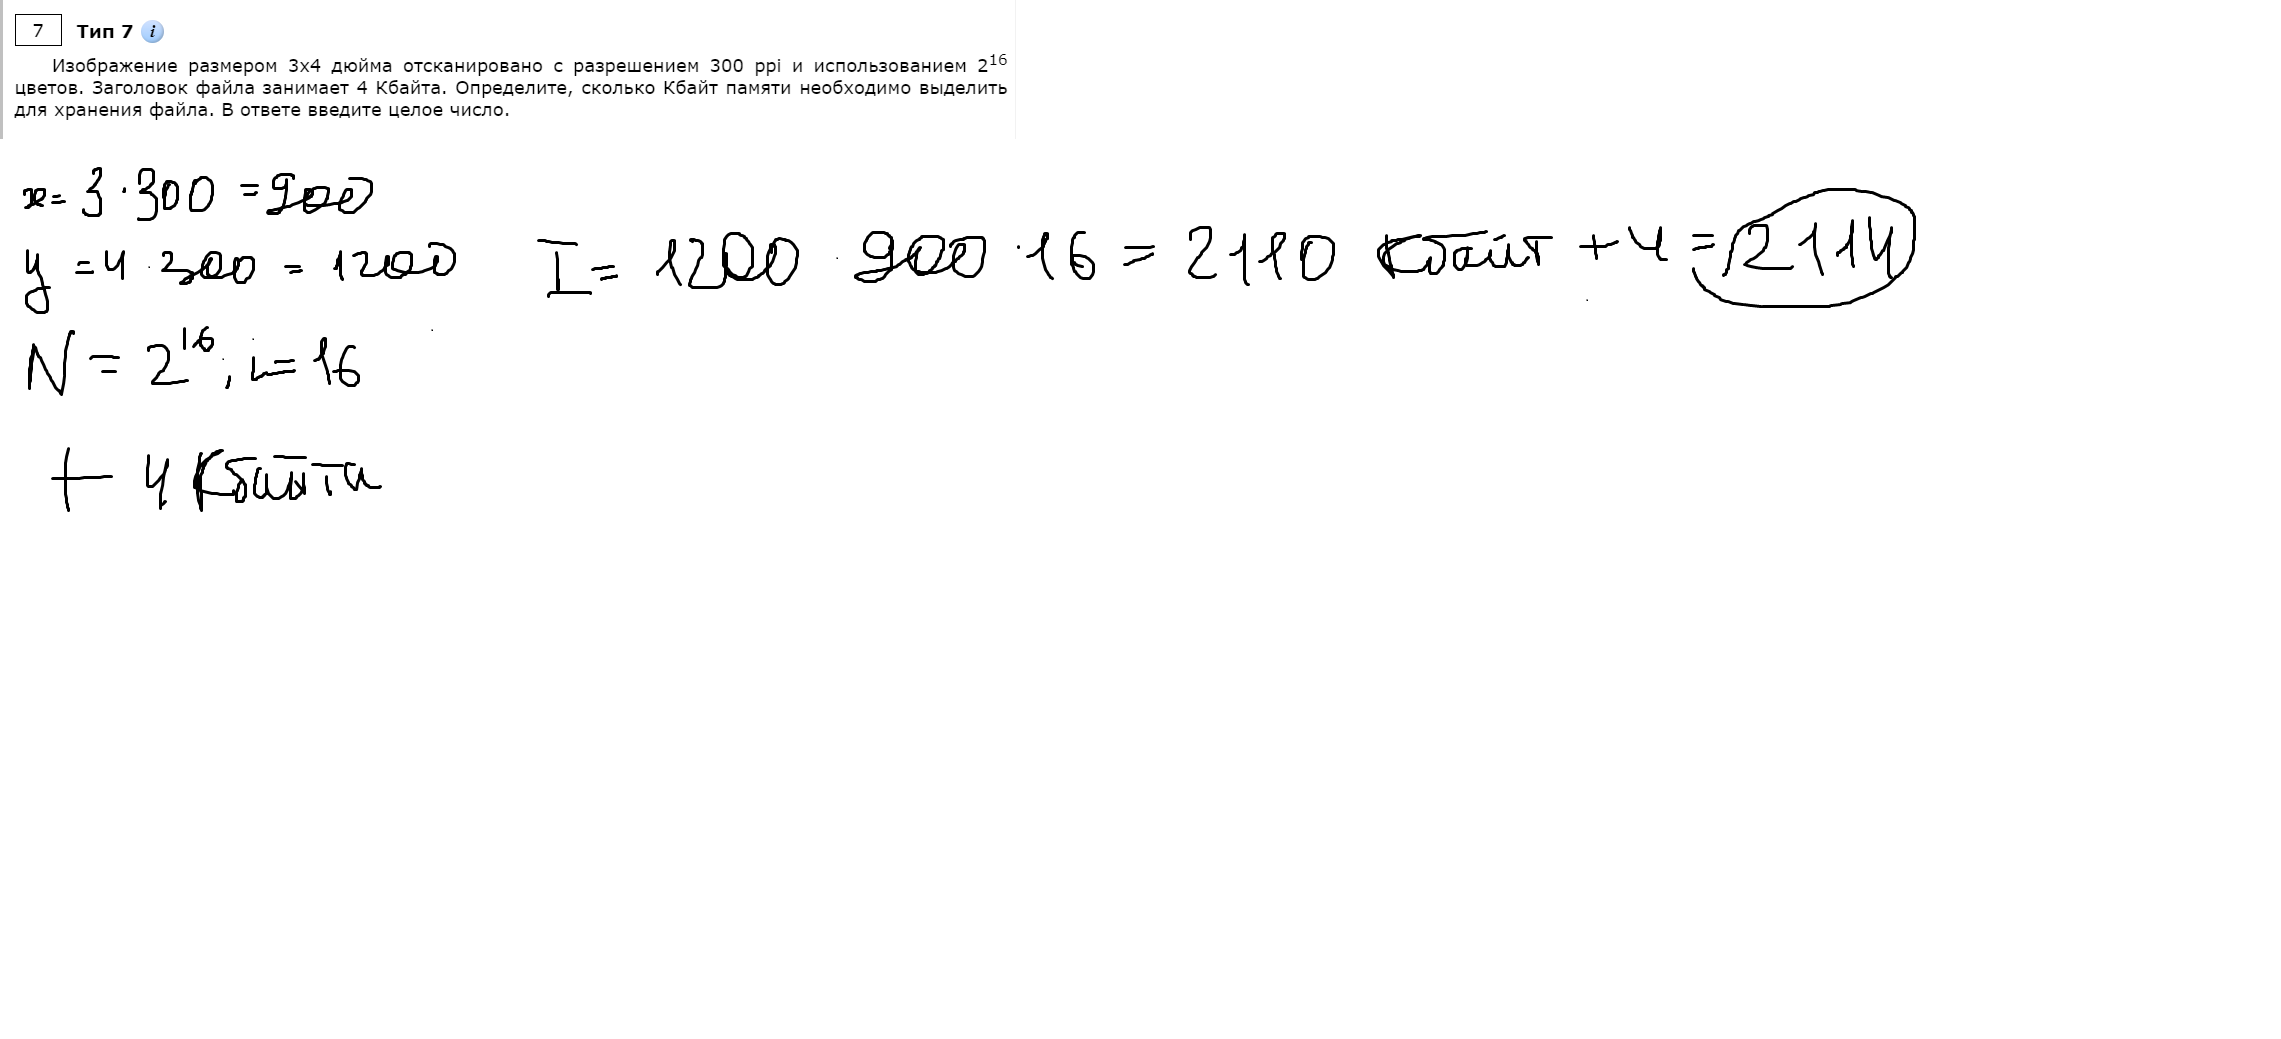 7 Тип 7 i
Изображение размером 3х4 дюйма отсканировано с разрешением 300 ppi и использованием 2^16
цветов. Заголовок файла занимает 4 Кбайта. Определите, сколько Кбайт памяти необходимо выделить
для хранения файла. В ответе введите целое число.
x = 3 · 300 = 900
y = 4 · 300 = 1200
I = 1200 · 900 · 16 = 2110 Кбайт + 4 = 2114
N = 2^16, i = 16
+ 4 Кбайта